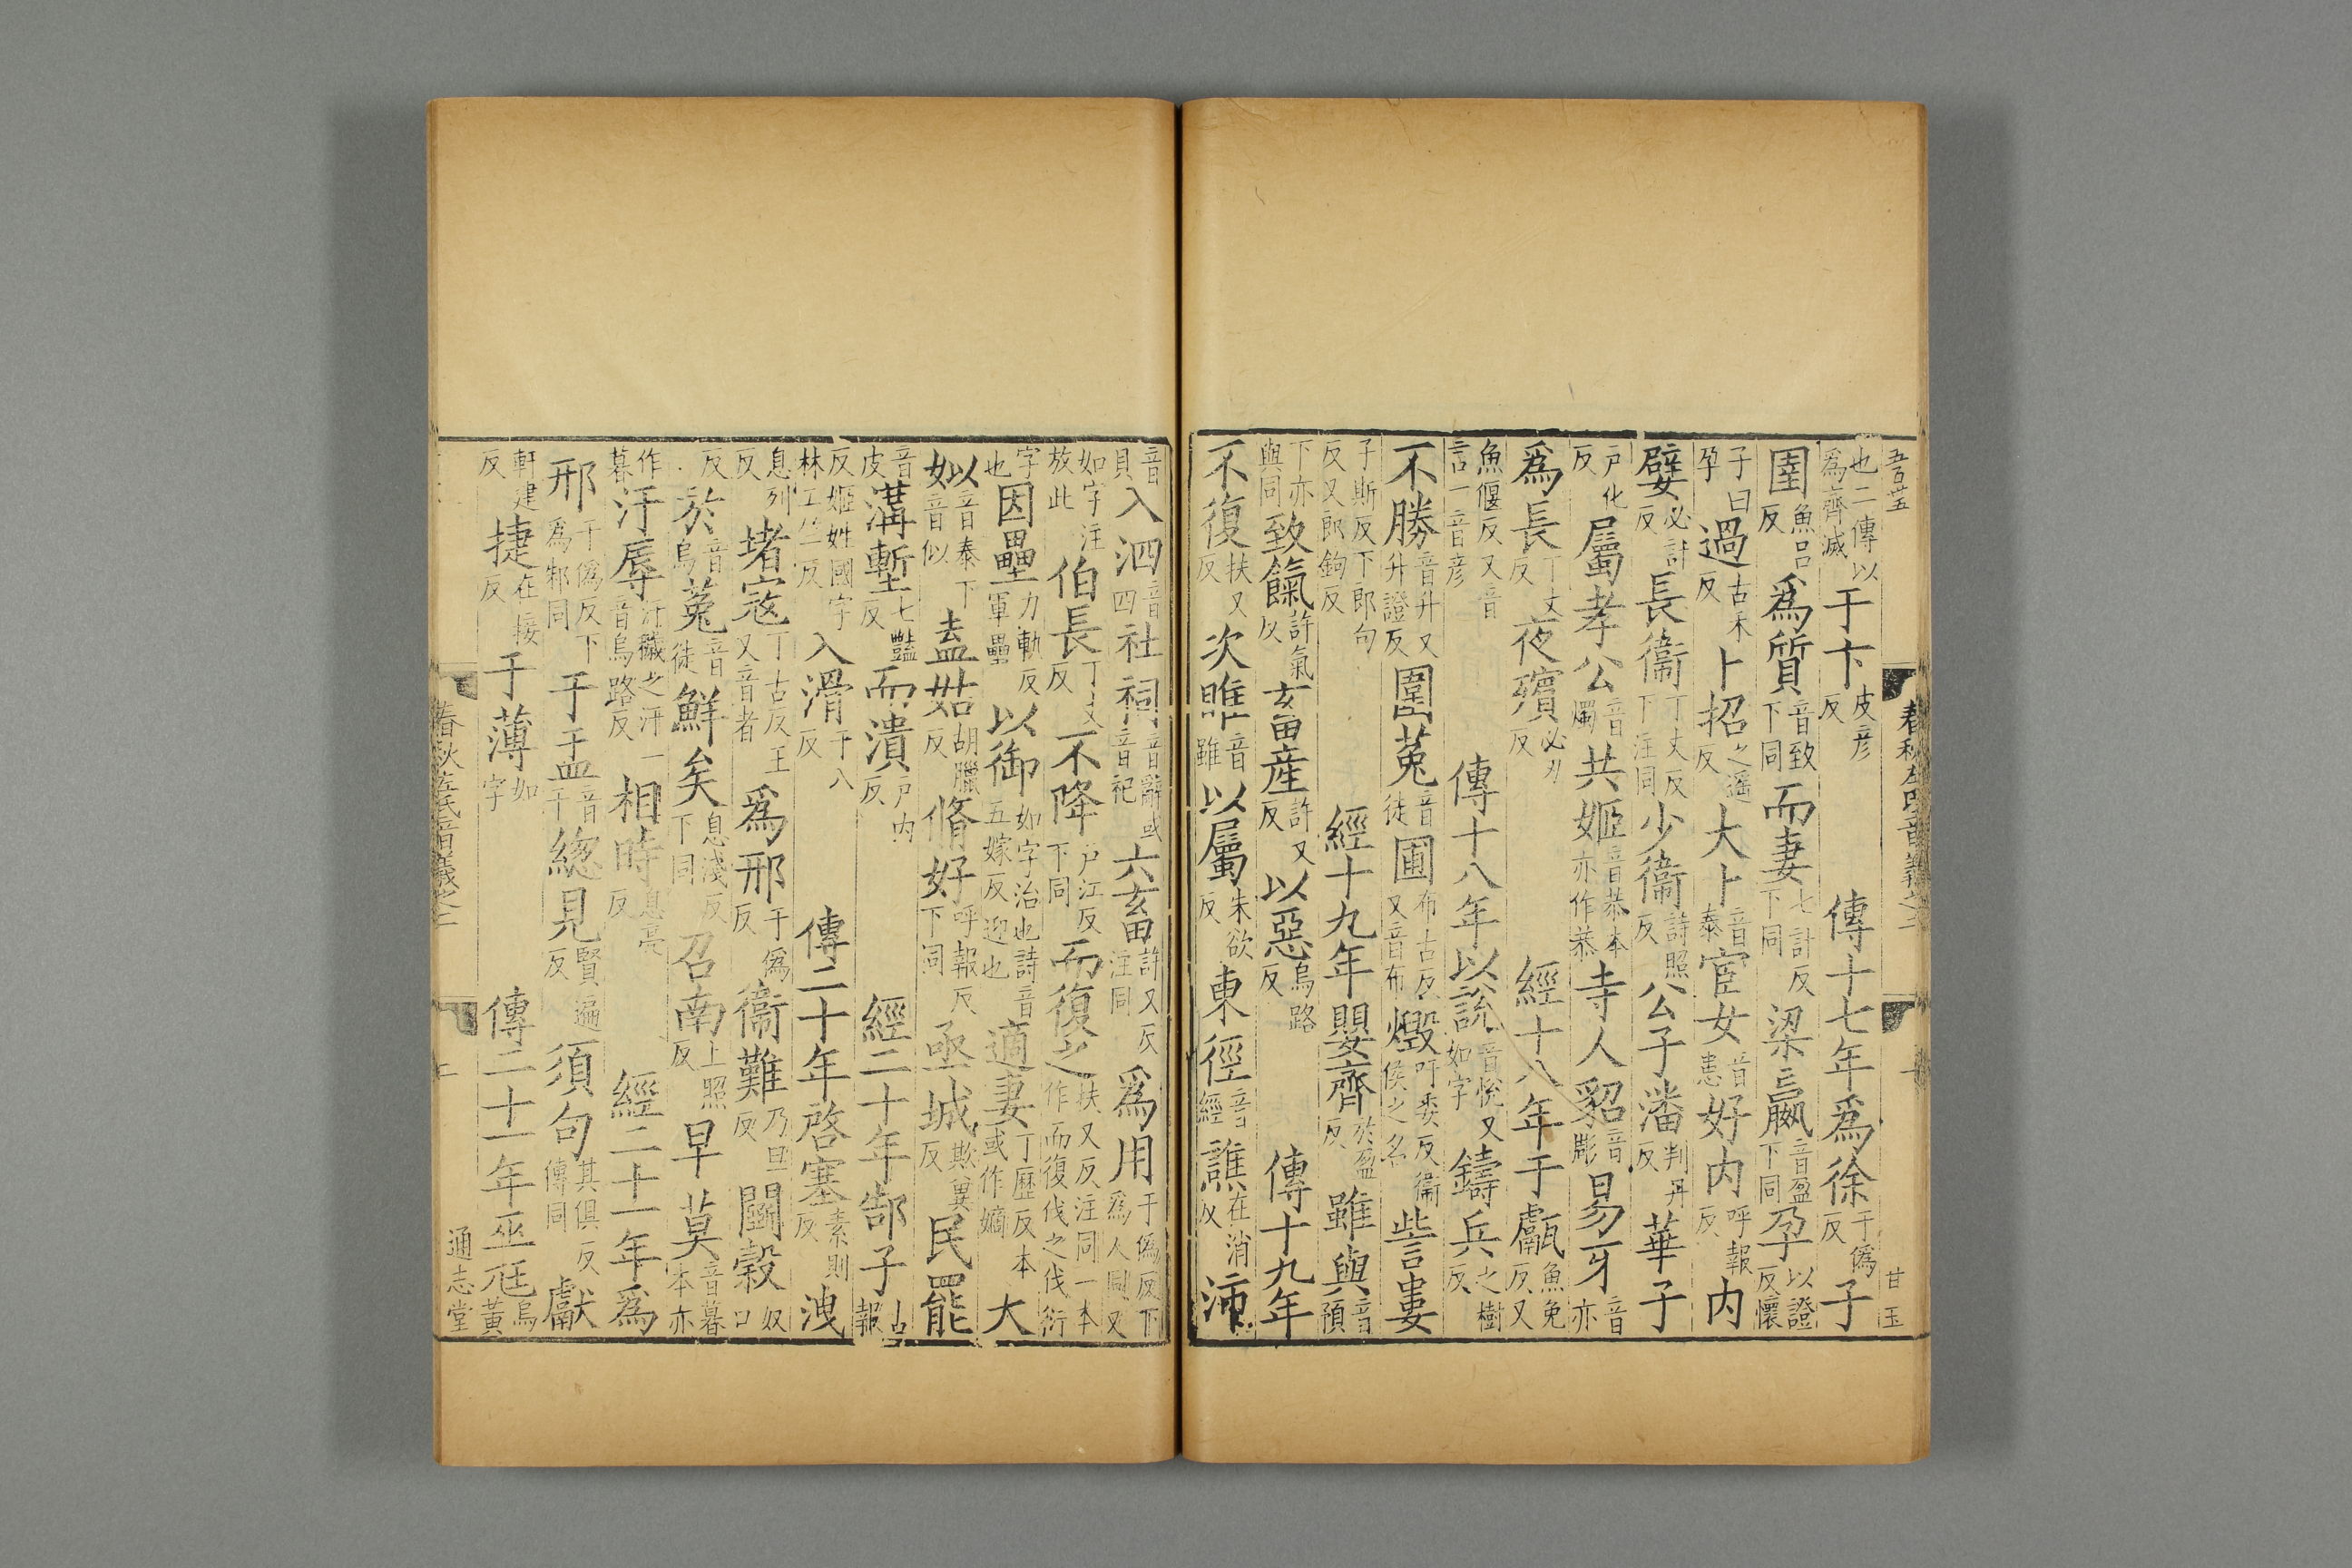 五百廿五 春秋左氏音義之二 甘玉
也二傳以爲齊滅于卞皮彥反傳十七年爲徐于僞反子
圉魚呂反爲質音致下同而妻七計反下同梁嬴音盈下同孕以證反懷
子曰孕過古禾反卜招之遙反大卜音泰宦女音患好內呼報反內
嬖必計反長衞丁丈反下注同少衞詩照反公子潘判丹反華子
戶化反屬孝公音燭共姬音恭本亦作恭寺人貂音彫易牙音亦
爲長丁丈反夜殯必刃反經十八年于甗魚免反又
魚偃反又音言一音彥傳十八年以說音悅又如字鑄兵之樹反
不勝音升又升證反圍菟音徒圃布古反又音布燬吁委反衞侯之名訾婁
子斯反下郎句反又郎鉤反經十九年嬰齊於盈反雖與音預
下亦與同致餼許氣反畜產許又反以惡烏路反傳十九年
不復扶又反次睢音雖以屬朱欲反東徑音經譙在消反沛
音貝入泗音四社祠音辭或音祀六畜許又反注同爲用于僞反下爲人同又
如字注放此伯長丁丈反不降戶江反下同而復之扶又反注同一本作而復伐之伐衍
字也因壘力軌反軍壘以御如字治也詩音五嫁反迎也適妻丁歷反本或作嫡大
姒音泰下音似盍姑胡臘反脩好呼報反下同亟城欺冀反民罷
音皮溝壍七豔反而潰戶內反經二十年郜子古報
反姬姓國字林工竺反入滑于八反傳二十年啓塞素則反洩
息列反堵寇丁古反王又音者爲邢于僞反衞難乃旦反鬬穀奴口
反於音烏菟音徒鮮矣息淺反下同召南上照反早莫音暮本亦
作暮汙辱汙穢之汙一音烏路反相時息亮反經二十一年爲
邢于僞反下爲邾同于盂音于緫見賢遍反須句其俱反傳同獻
軒建反捷在接反于薄如字傳二十一年巫尫烏黃
春秋左氏音義之二 二 通志堂